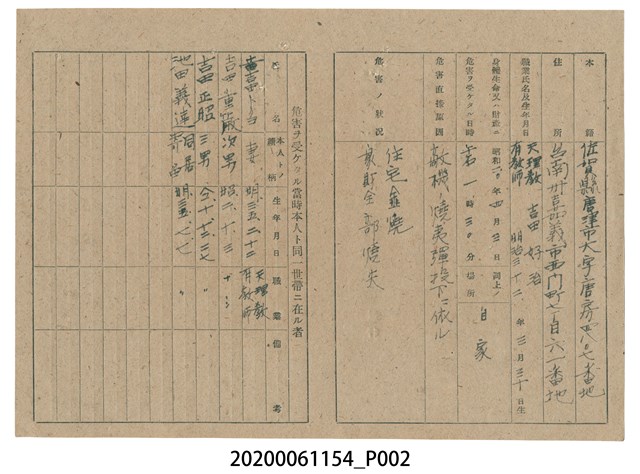 本籍 佐賀縣唐津市大字唐房四八七番地
住所 台南州嘉義市西門町七丁目六一番地
職業氏名及生年月日 天理教有教師 吉田好治 明治三十二年三月三十日生
身體生命又ハ財産ニ危害ヲ受ケタル日時 昭和二〇年四月三日同上ノ
第一時三〇分場所 自家
危害直接原因 敵機ノ燒夷彈投下ニ依ル
危害ノ狀況 住宅全燒
家財全部燒失
危害ヲ受ケタル當時本人ト同一世帶ニ在ル者
氏名 本人トノ續柄 生年月日 職業 備考
吉田 妻 明三五、二、十二 天理教有教師
吉田重 次男 昭二、十、三
吉田正昭 三男 仝、十、三、七 〃
池田義達 同居 寄留 明三五、七、七 〃
20200061154_P002